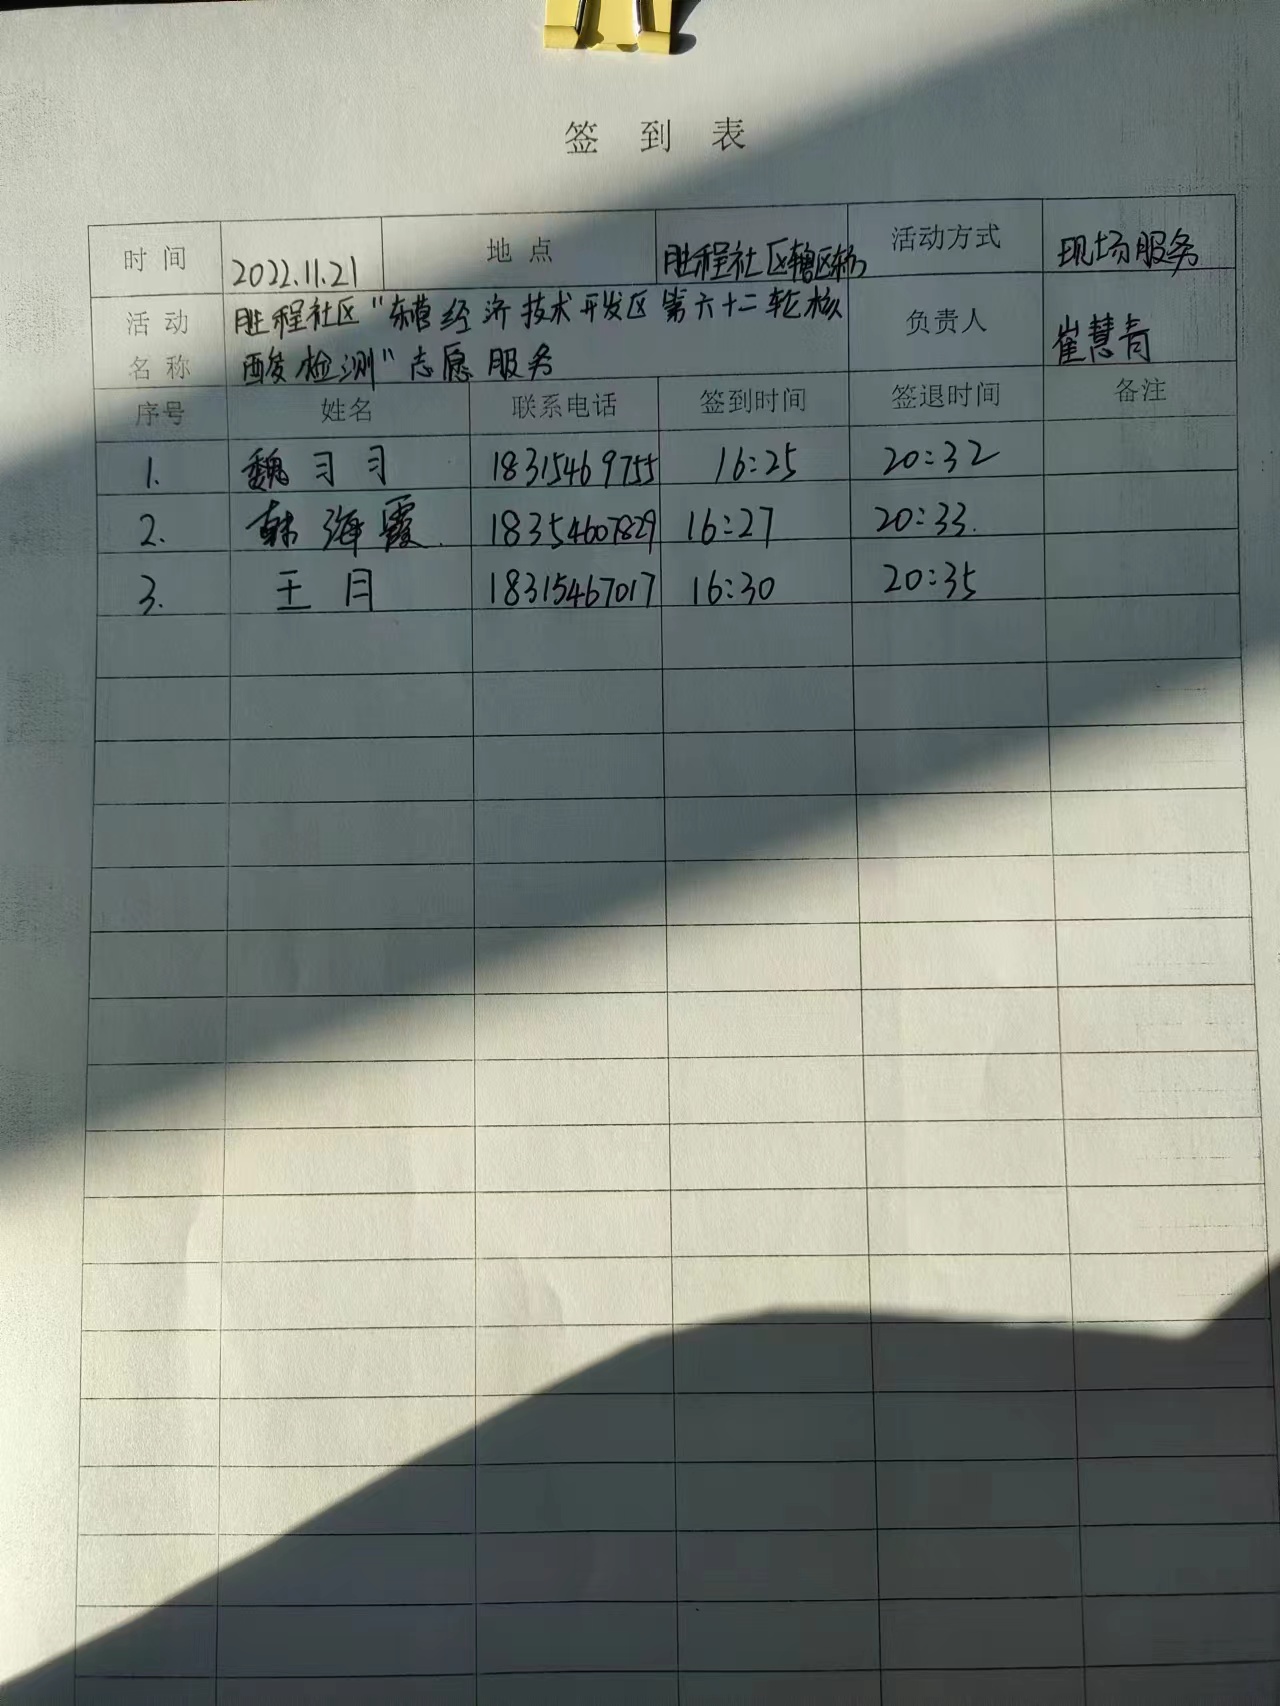 签 到 表
时 间 2022.11.21 地 点 胜程社区辖区 活动方式 现场服务
活 动 名 称 胜程社区“东营经济技术开发区第六十二轮核
酸检测”志愿服务 负责人 崔慧青
序号 姓名 联系电话 签到时间 签退时间 备注
1. 魏习习 18315469755 16:25 20:32
2. 韩海霞. 18354607829 16:27 20:33.
3. 王月 18315467017 16:30 20:35